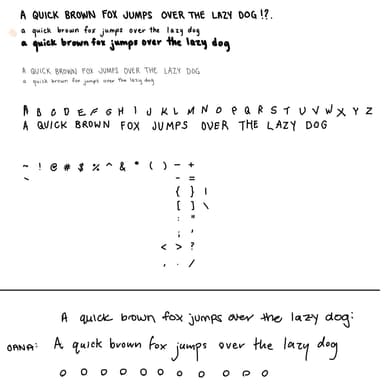 A QUICK BROWN FOX JUMPS OVER THE LAZY DOG!?.
a quick brown fox jumps over the lazy dog
a quick brown fox jumps over the lazy dog
A QUICK BROWN FOX JUMPS OVER THE LAZY DOG
a quick brown fox jumps over the lazy dog
A B C D E F G H I J K L M N O P Q R S T U V W X Y Z
A QUICK BROWN FOX JUMPS OVER THE LAZY DOG
~ ! @ # $ % ^ & * ( ) - +
` - =
{ } |
[ ] \
: "
; '
< > ?
, . /
A quick brown fox jumps over the lazy dog:
OANA: A quick brown fox jumps over the lazy dog
o o o o o o o o o o o